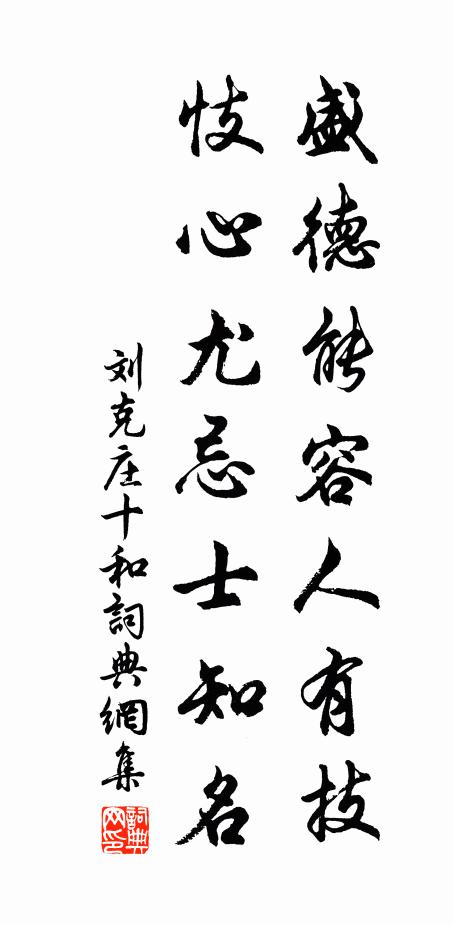 盛德能容人有技
忮心尤忌士知名
刘克庄十和詞典網集
詞典網印